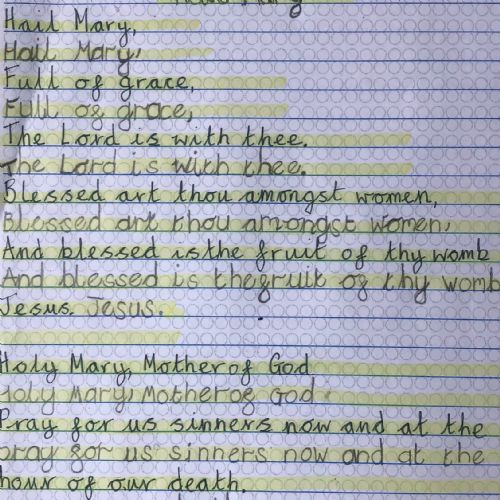 Hail Mary,
Hail Mary,
Full of grace,
Full of grace,
The Lord is with thee.
The Lord is with thee.
Blessed art thou amongst women,
Blessed art thou amongst women,
And blessed is the fruit of thy womb
And blessed is the fruit of thy womb
Jesus. Jesus.
Holy Mary, Mother of God
Holy Mary, Mother of God.
Pray for us sinners now and at the
pray for us sinners now and at the
hour of our death.